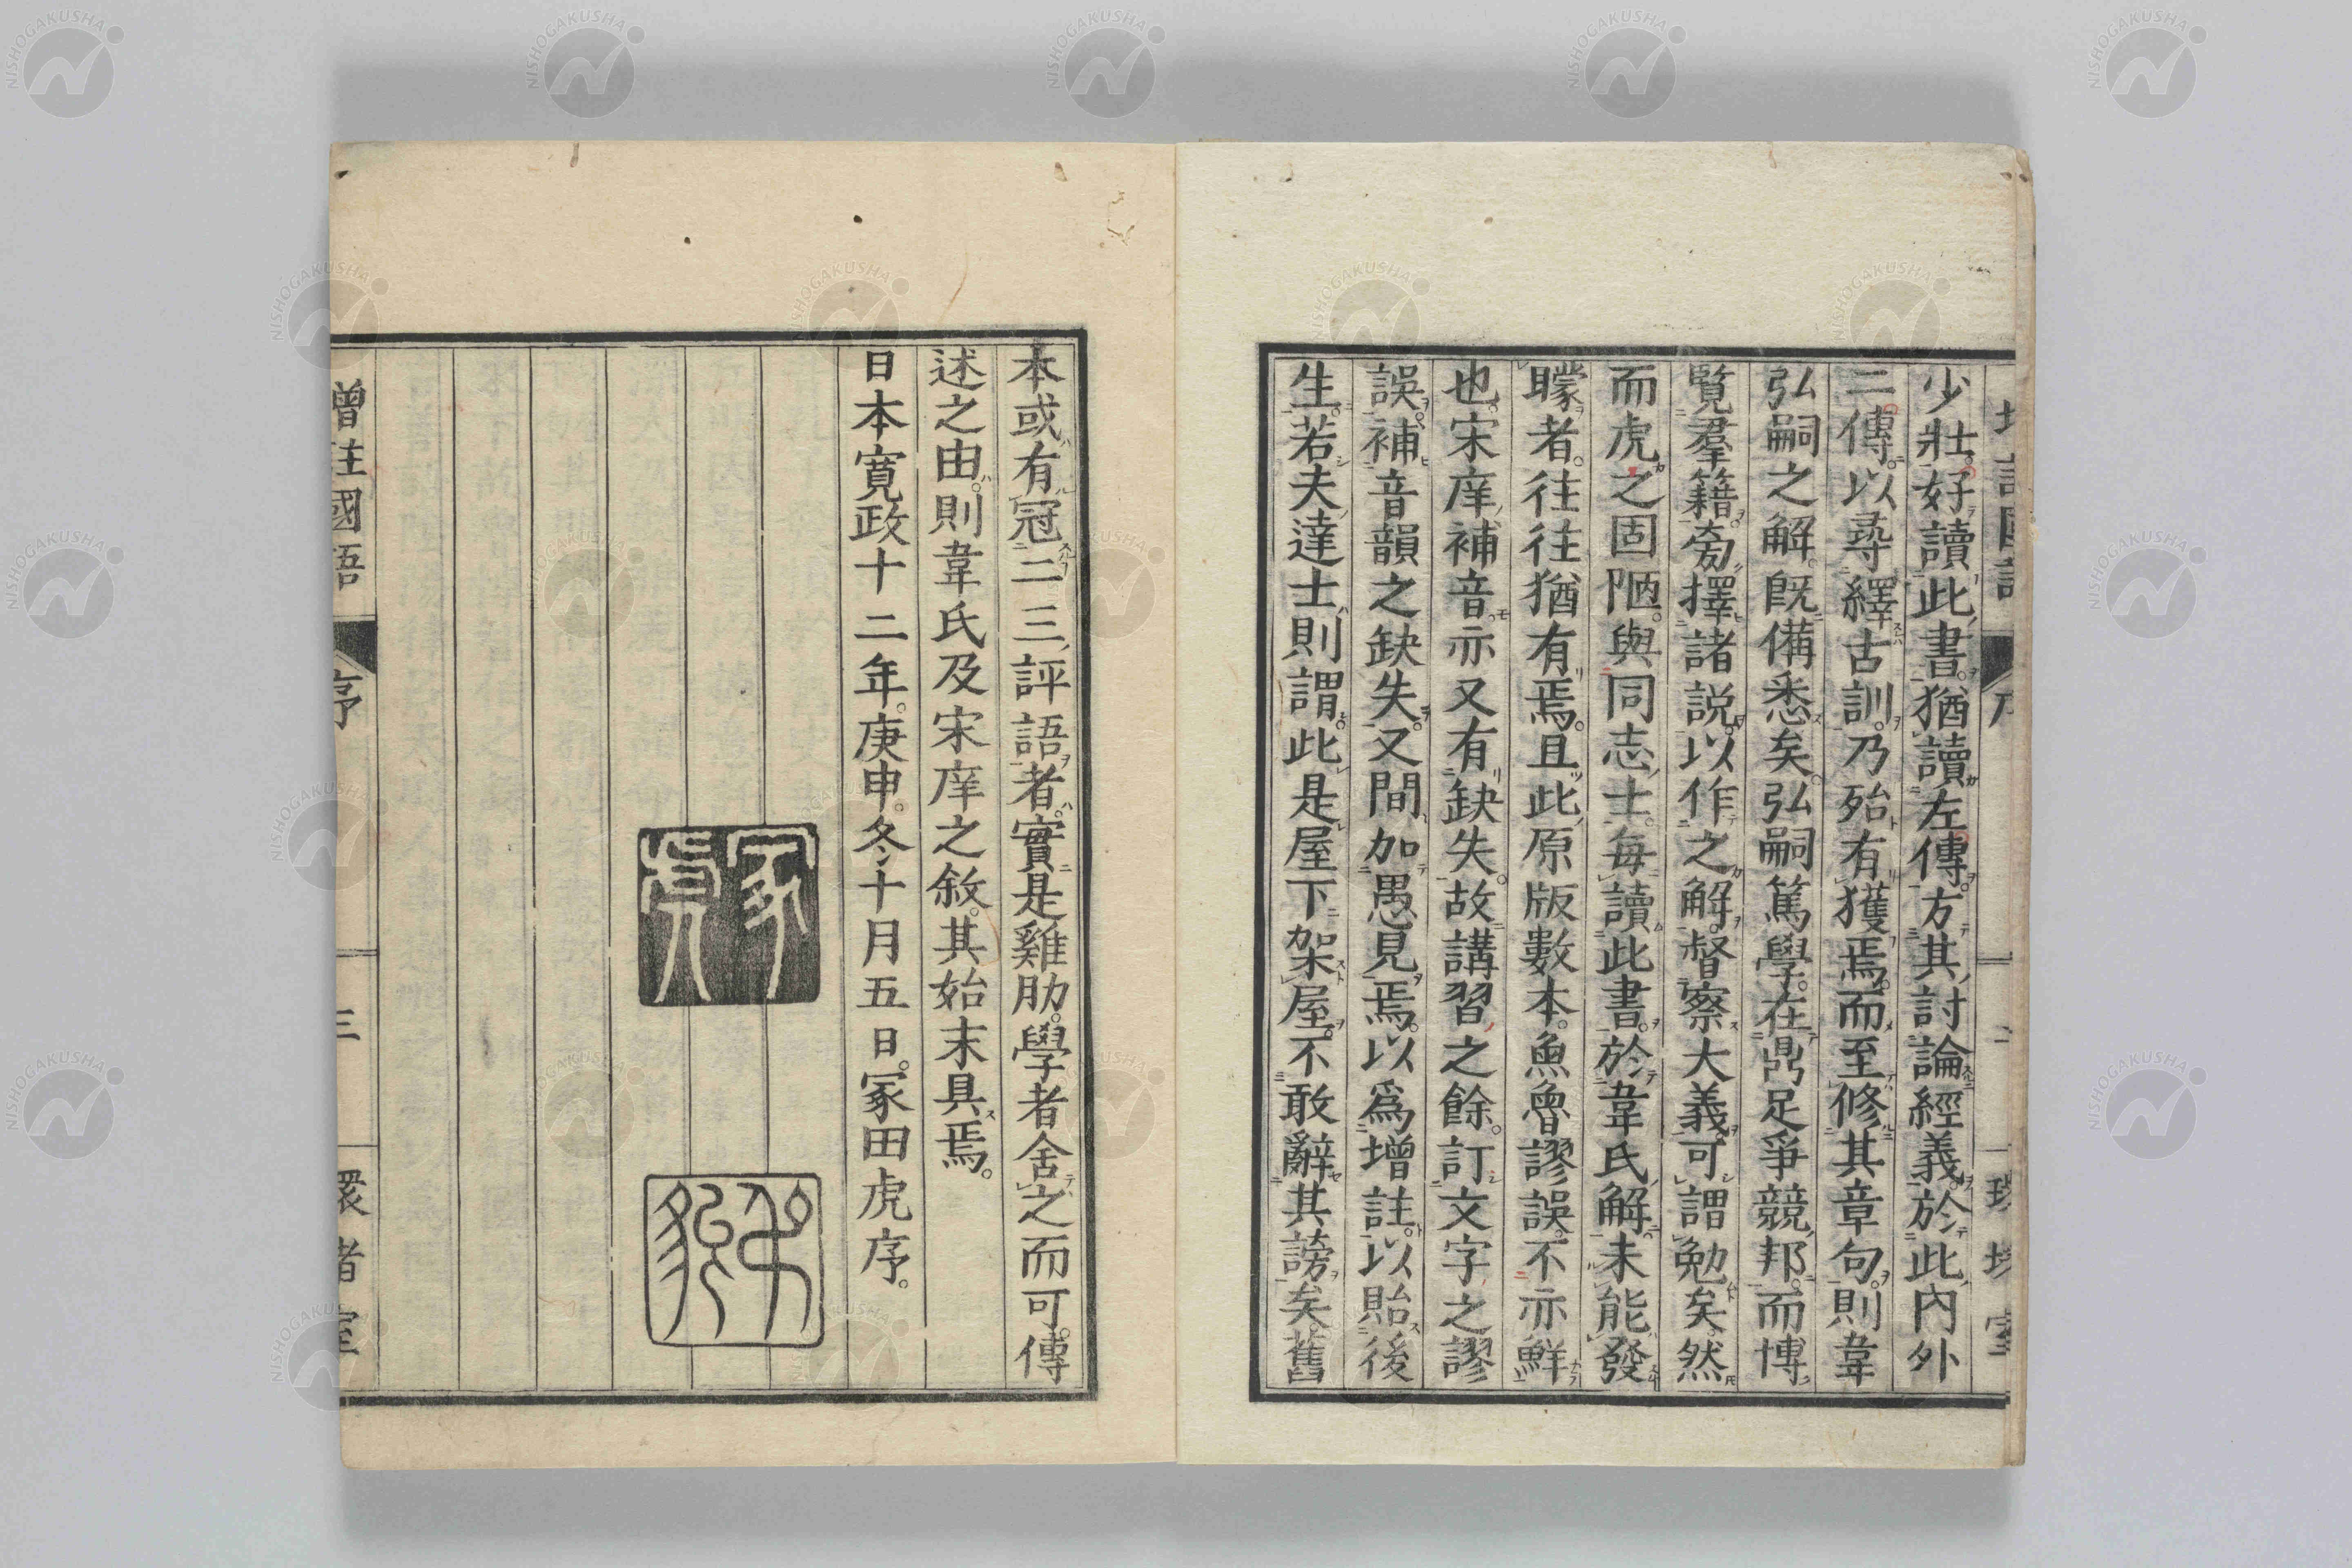 少壯好讀此書。猶讀左傳。方其討論經義。於此內外
二傳。以尋繹古訓。乃殆有獲焉。而至修其章句。則韋
弘嗣之解。旣備悉矣。弘嗣篤學。在鼎足爭競邦。而博
覽羣籍。旁擇諸說。以作之解。督察大義。可謂勉矣。然
而虎之固陋。與同志士。每讀此書。於韋氏解。未能發
矇者。往往猶有焉。且此原版數本。魚魯謬誤。不亦鮮
也。宋庠補音。亦又有缺失。故講習之餘。訂文字之謬
誤。補音韻之缺失。又間加愚見焉。以爲增註。以貽後
生。若夫達士。則謂此是屋下架屋。不敢辭其謗矣。舊
本或有冠二三評語者。實是雞肋。學者舍之而可。傳
述之由。則韋氏及宋庠之敘。其始末具焉。
日本寛政十二年。庚申。冬十月五日。冢田虎序。
增註國語
序
三
環堵室
NISHOGAKUSHA